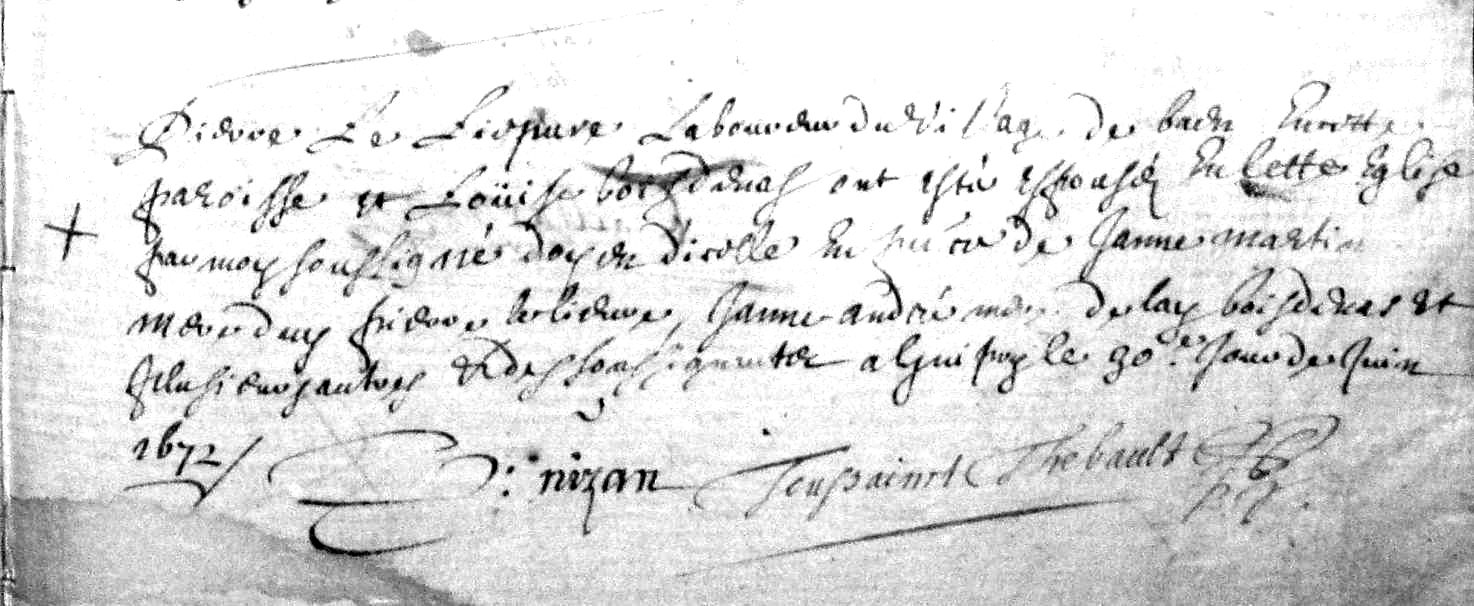 Pierre Le Liepure Laboureur du village de baden En cette
paroisse et Loüise boisdenas ont esté espousés En cette Eglise
par moy soussigné doyen d'icelle En p̃nce de Janne martin
mere dud pierre le lieure, Janne andré mere de lad boisdenas et
plusieurs autres et des soussignantz a le 30.e Jour de Juin
1672/ nizan Toussainct Thebault